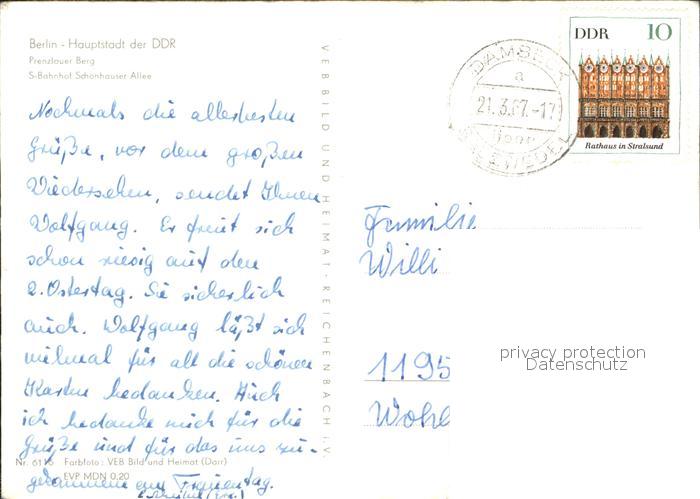 Berlin - Hauptstadt der DDR
Prenzlauer Berg
S-Bahnhof Schönhauser Allee
Nochmals die allerbesten
Grüße, vor dem großen
Wiedersehen, sendet Ihnen
Wolfgang. Er freut sich
schon riesig auf den
2. Ostertag. Sie sicherlich
auch. Wolfgang läßt sich
vielmal für all die schönen
Karten bedanken. Auch
ich bedanke mich für die
Grüße und für das uns zu-
gekommene am Frauentag.
Nr. 6116 Farbfoto: VEB Bild und Heimat (Darr)
EVP MDN 0,20
VEB BILD UND HEIMAT · REICHENBACH i. V.
DAMBECK
a
21.3.67.-17
SALZWEDEL
DDR 10
Rathaus in Stralsund
Familie
Willi
1195
privacy protection
Datenschutz